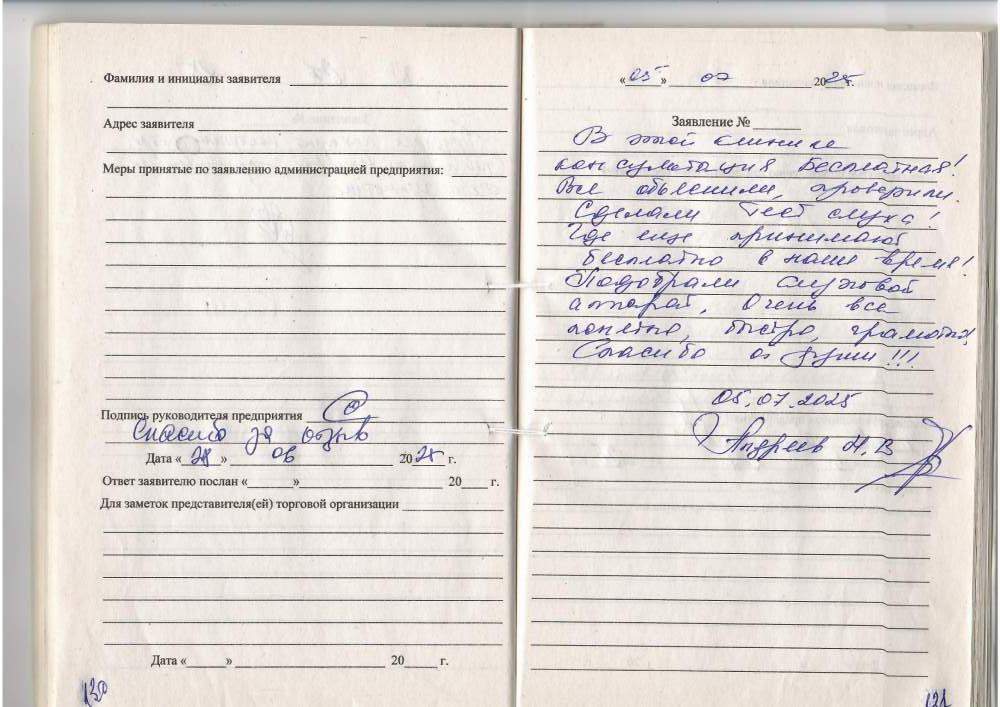 Фамилия и инициалы заявителя
Адрес заявителя
Меры принятые по заявлению администрацией предприятия:
Подпись руководителя предприятия
Спасибо за отзыв
Дата «28» 06 2025 г.
Ответ заявителю послан « » 20 г.
Для заметок представителя(ей) торговой организации
Дата « » 20 г.
130
«05» 07 2025 г.
Заявление №
В этой клинике
консультация бесплатная!
Все объяснили, проверили.
Сделали тест слуха!
Где еще принимают
бесплатно в наше время!
Подобрали слуховой
аппарат. Очень все
понятно, быстро, грамотно!
Спасибо от души!!!
05.07.2025
Андреев Н.В
131